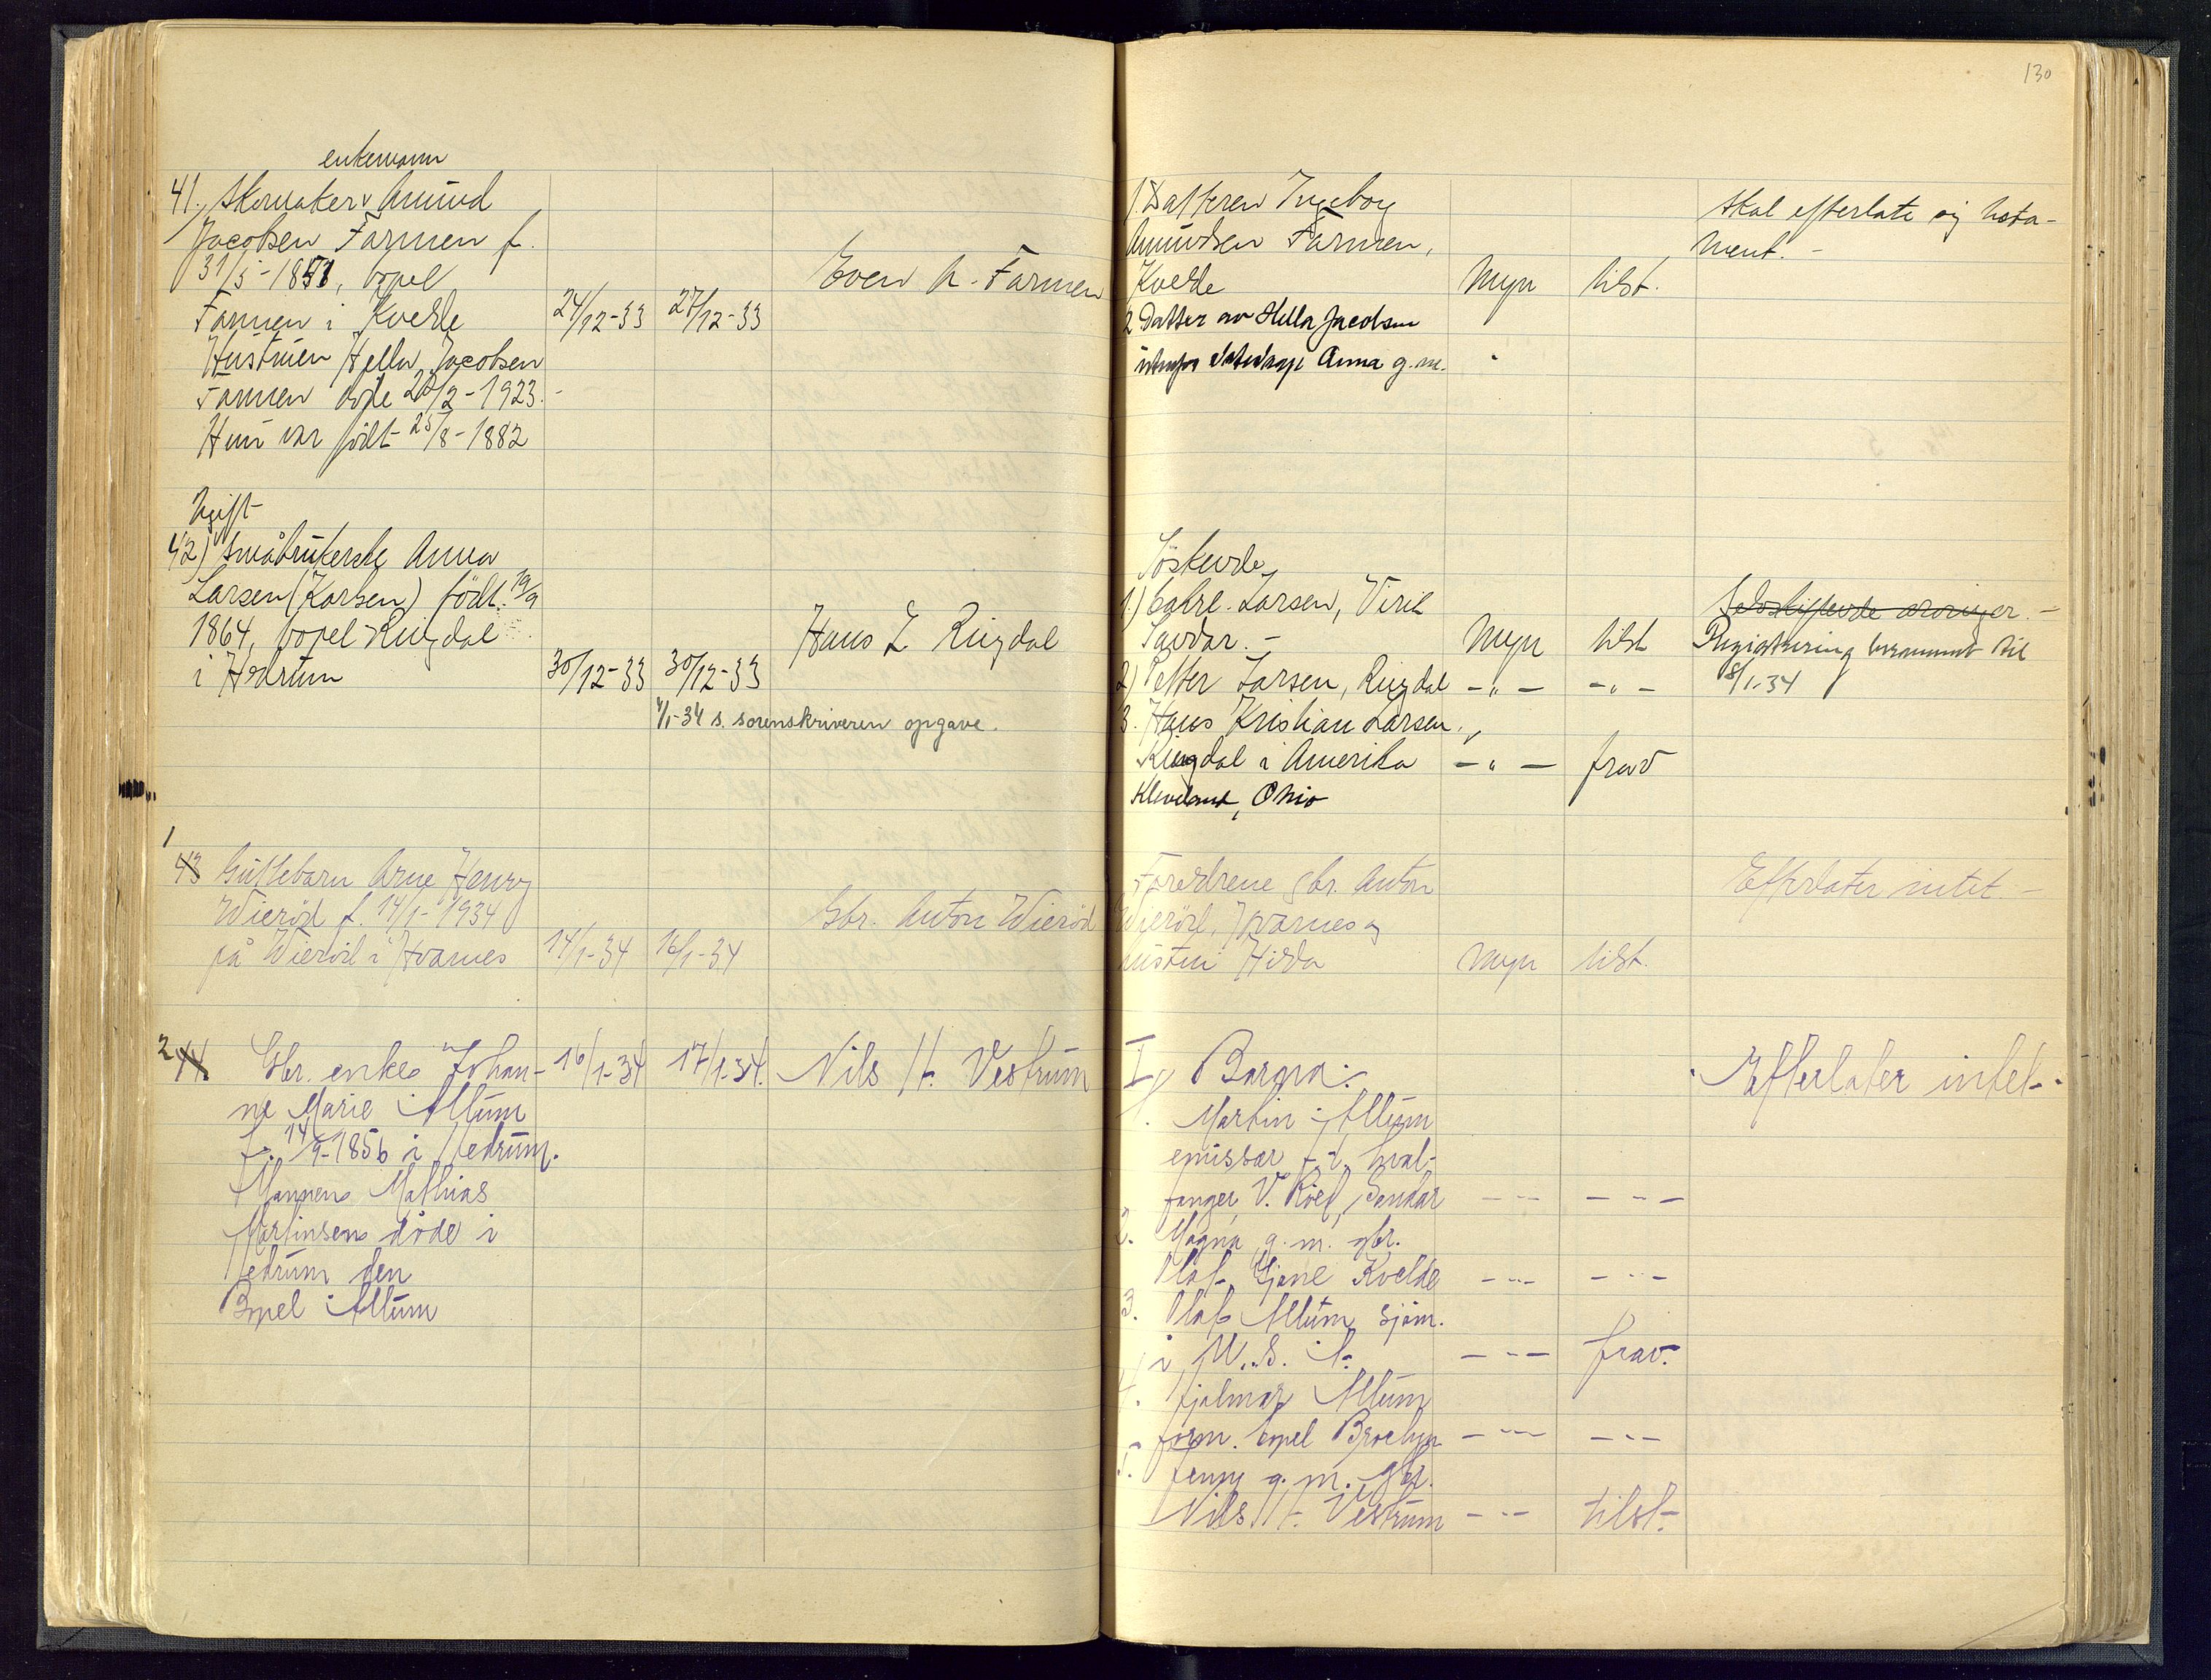 130
enkemann
41. Skomaker Amund
Jacobsen Farmen f.
31/5-1851, bopel
Farmen i Kvelde
Hustruen Hella Jacobsen
Farmen døde 20/2-1923.-
Hun var født 25/8-1882
24/12-33 27/12-33
Even A. Farmen
1. Datteren Ingeborg
Amundsen Farmen,
Kvelde Myn tilst.
2 Datter av Hella Jacobsen
Anna g.m.
Skal efterlate sig testa-
ment.-
Ugift
42) Småbrukerske Anna
Larsen (Karlsen) født 19/9
1864, bopel Ringdal
i Hedrum
30/12-33 30/12-33
Hans L Ringdal
4/1-34 s. sorenskriveren opgave.
Søskende
1.) Larsen, Virik
Sandar.- Myn tilst
2) Petter Larsen, Ringdal -"- -"-
3. Hans Kristian Larsen,
Ringdal i Amerika -"- frav
Kleveland, Ohio
Selvskiftende arvinger.-
Registrering berammet til
8/1-34
1
43 Guttebarn Arne Henry
Wierød f. 14/1-1934
på Wierød i Hvarnes
14/1-34 16/1-34
Gbr. Anton Wierød
Foreldrene gbr. Anton
Wierød, Hvarnes og
hustru Hilda Myn tilst.
Efterlater intet.-
2
44. Gbr. enke Johan-
ne Marie Allum
f. 14/9-1856 i Hedrum.
Mannen Mathias
Martinsen døde i
Hedrum den
Bopel Allum
16/1-34 17/1-34.
Nils H. Vestrum
I, Barna:
1. Martin Allum
emissær f.t. hval-
fanger, V. Råel, Sandar --- ---
2. Magna g.m. gbr.
Olaf Gjone Kvelde --- ---
3. Olaf Allum sjøm.
i U.S.A. --- frav.
4. Hjalmar Allum
form. bopel Broclyn --- ---
5. Jenny g.m. gbr.
Nils H. Vestrum --- tilst.
Efterlater intet.